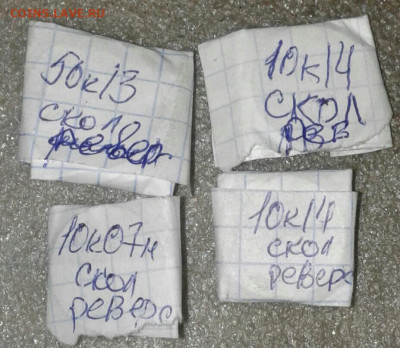 COINS.LAVE.RU
50к13
скол
реверс
10к14
скол
рев
10к07м
скол
реверс
10к14
скол
реверс